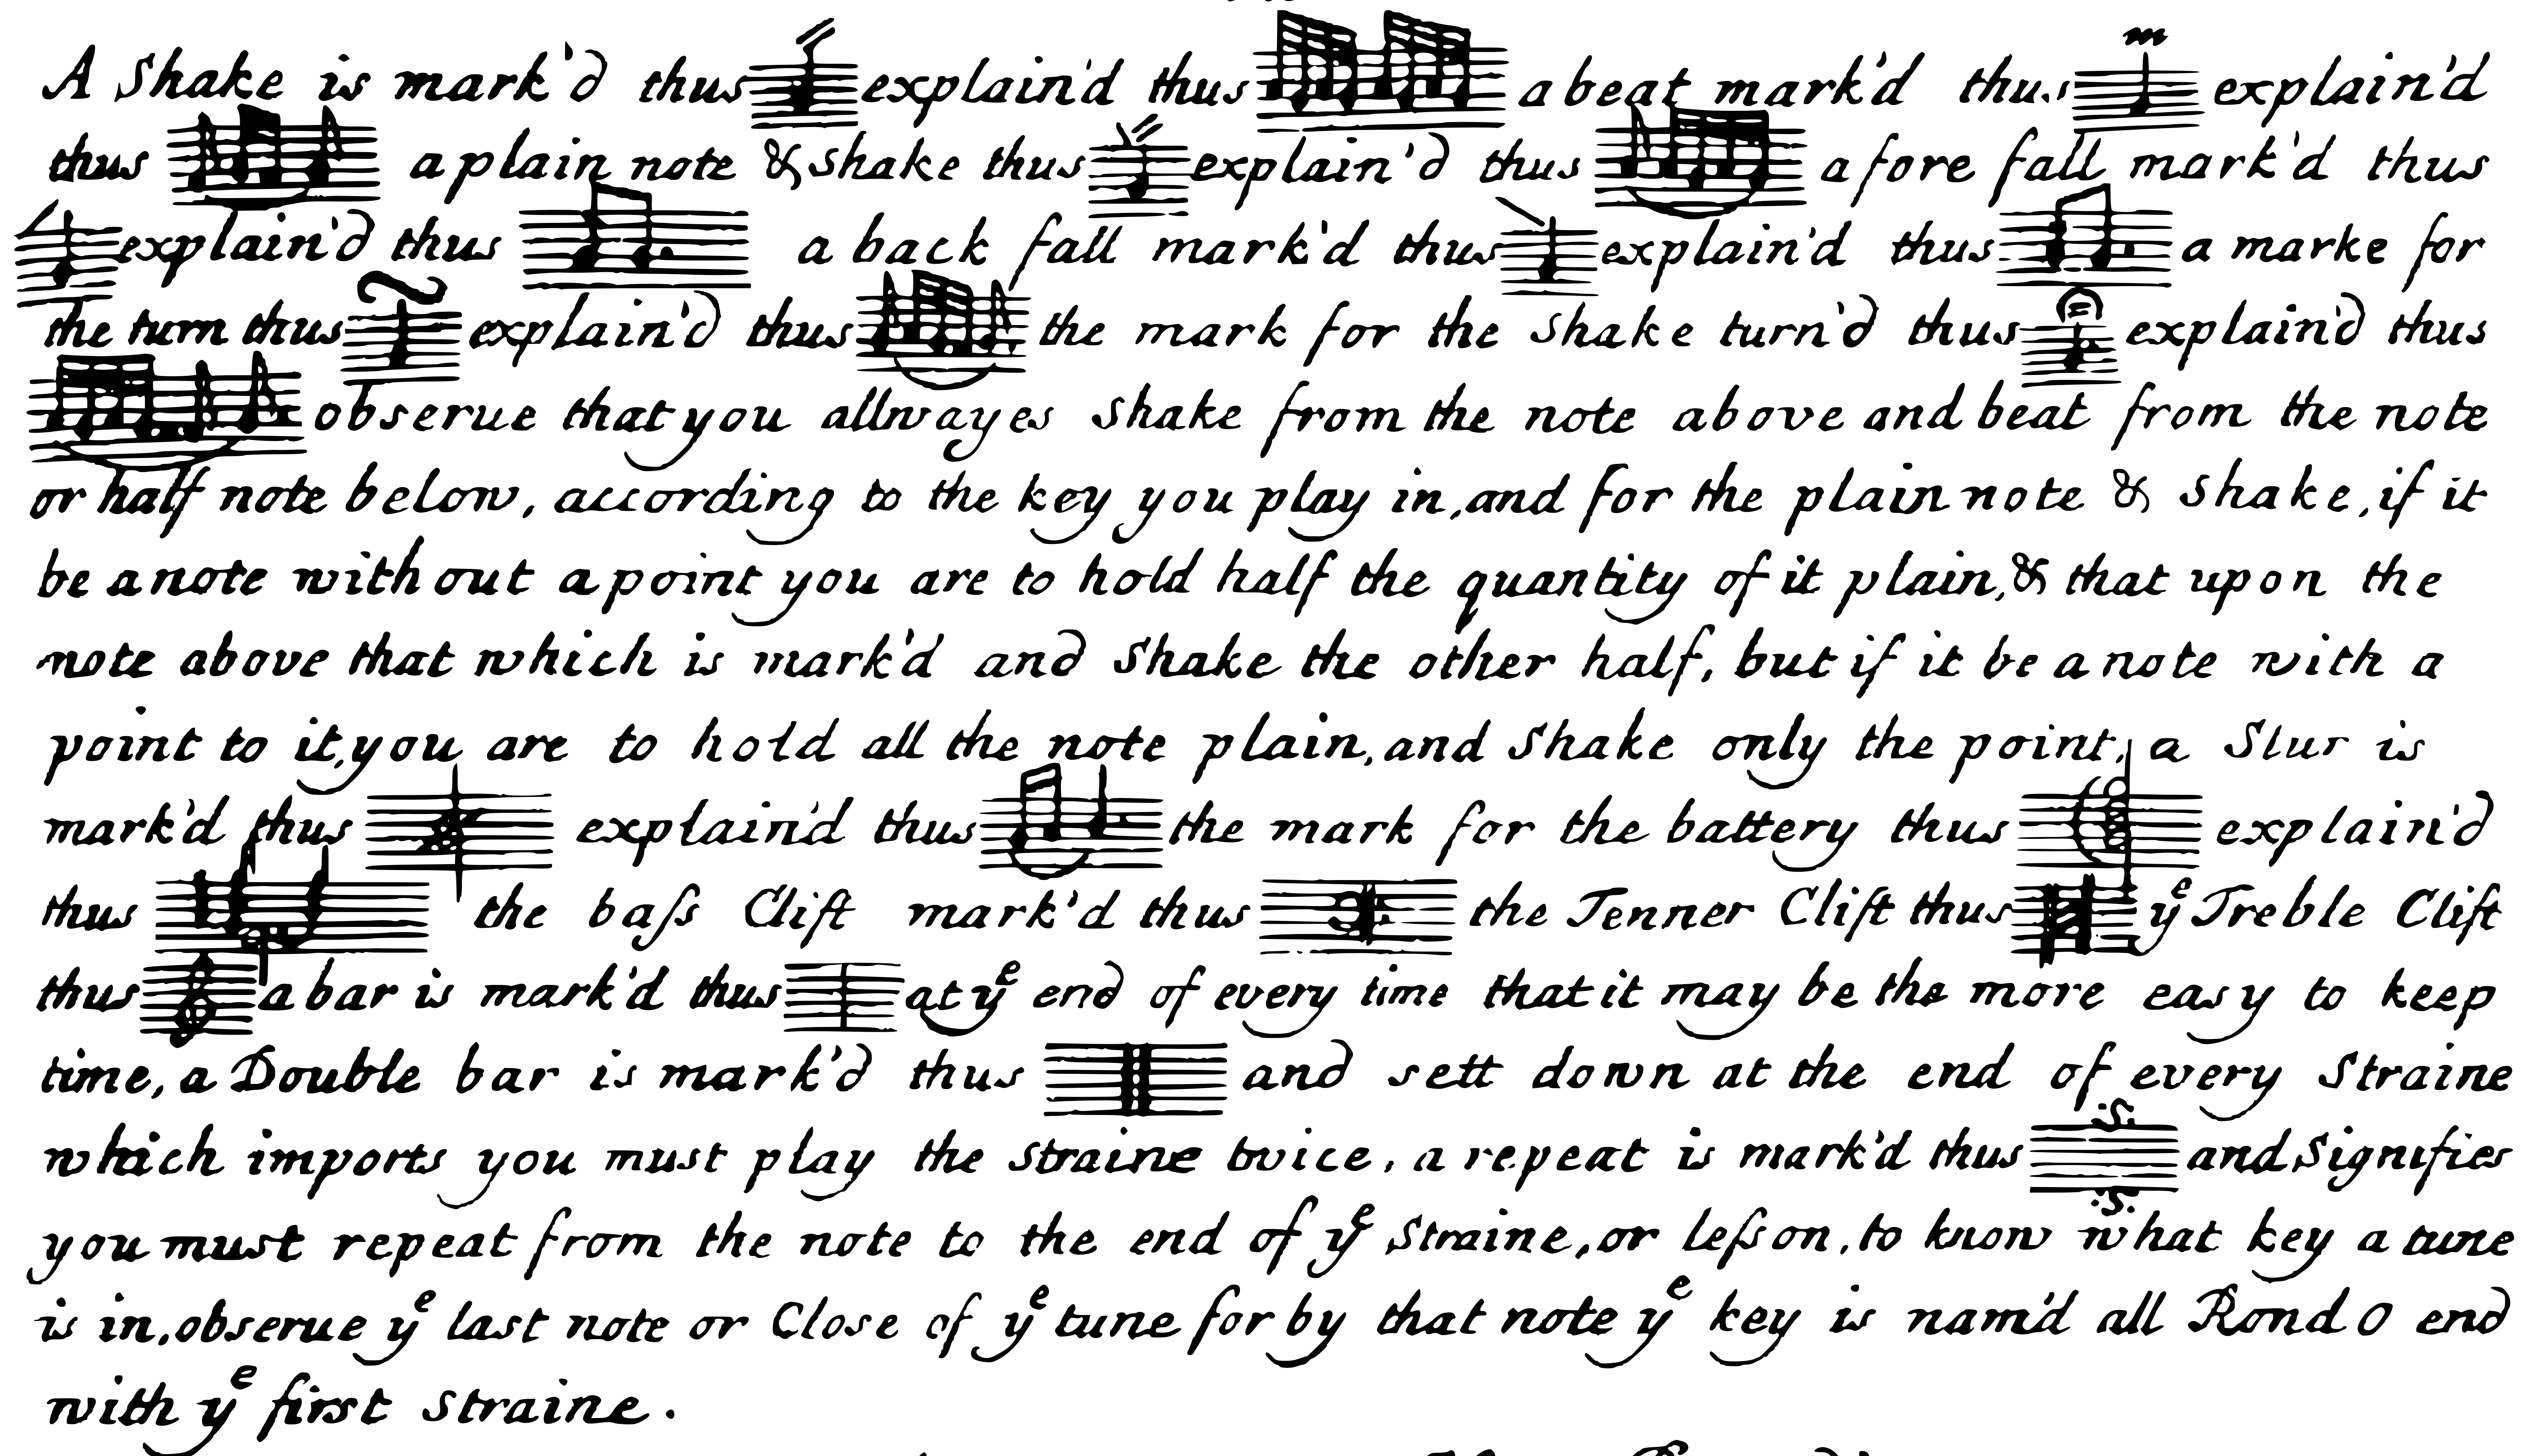 A Shake is mark'd thus explain'd thus a beat mark'd thus explain'd
thus a plain note & shake thus explain'd thus a fore fall mark'd thus
explain'd thus a back fall mark'd thus explain'd thus a marke for
the turn thus explain'd thus the mark for the shake turn'd thus explain'd thus
obserue that you allwayes shake from the note above and beat from the note
or half note below, according to the key you play in, and for the plain note & shake, if it
be a note without a point you are to hold half the quantity of it plain, & that upon the
note above that which is mark'd and shake the other half, but if it be a note with a
point to it, you are to hold all the note plain, and shake only the point, a Slur is
mark'd thus explain'd thus the mark for the battery thus explain'd
thus the baſs Clift mark'd thus the Tenner Clift thus yᵉ Treble Clift
thus a bar is mark'd thus at yᵉ end of every time that it may be the more easy to keep
time, a Double bar is mark'd thus and sett down at the end of every Straine
which imports you must play the straine twice, a repeat is mark'd thus .S. and Signifies .S.
you must repeat from the note to the end of yᵉ Straine, or leſson, to know what key a tune
is in, obserue yᵉ last note or Close of yᵉ tune for by that note yᵉ key is nam'd all Rond O end
with yᵉ first straine.